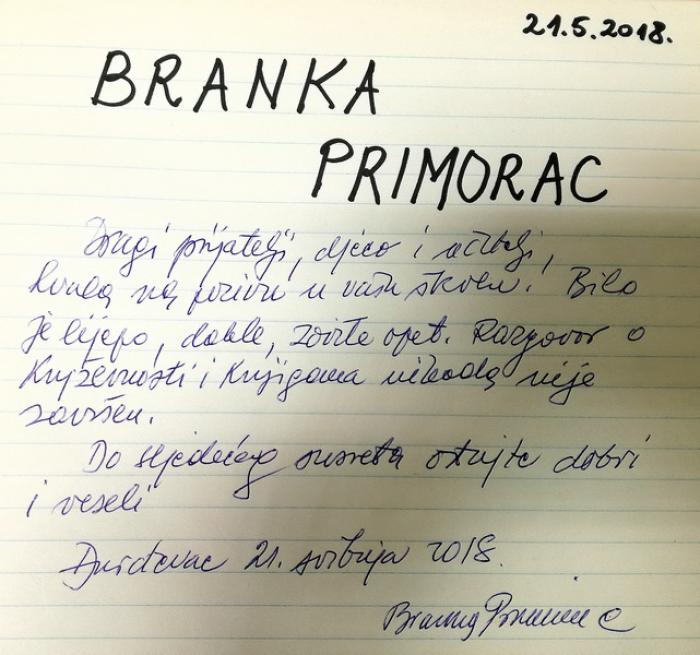 21.5.2018.
BRANKA
PRIMORAC
Dragi prijatelji, djeco i učitelji,
hvala na pozivu u vašu školu. Bilo
je lijepo, dakle, zovite opet. Razgovor o
književnosti i knjigama nikada nije
završen.
Do sljedećeg susreta ostajte dobri
i veseli
Đurđevac 21. svibnja 2018.
Branka Primorac